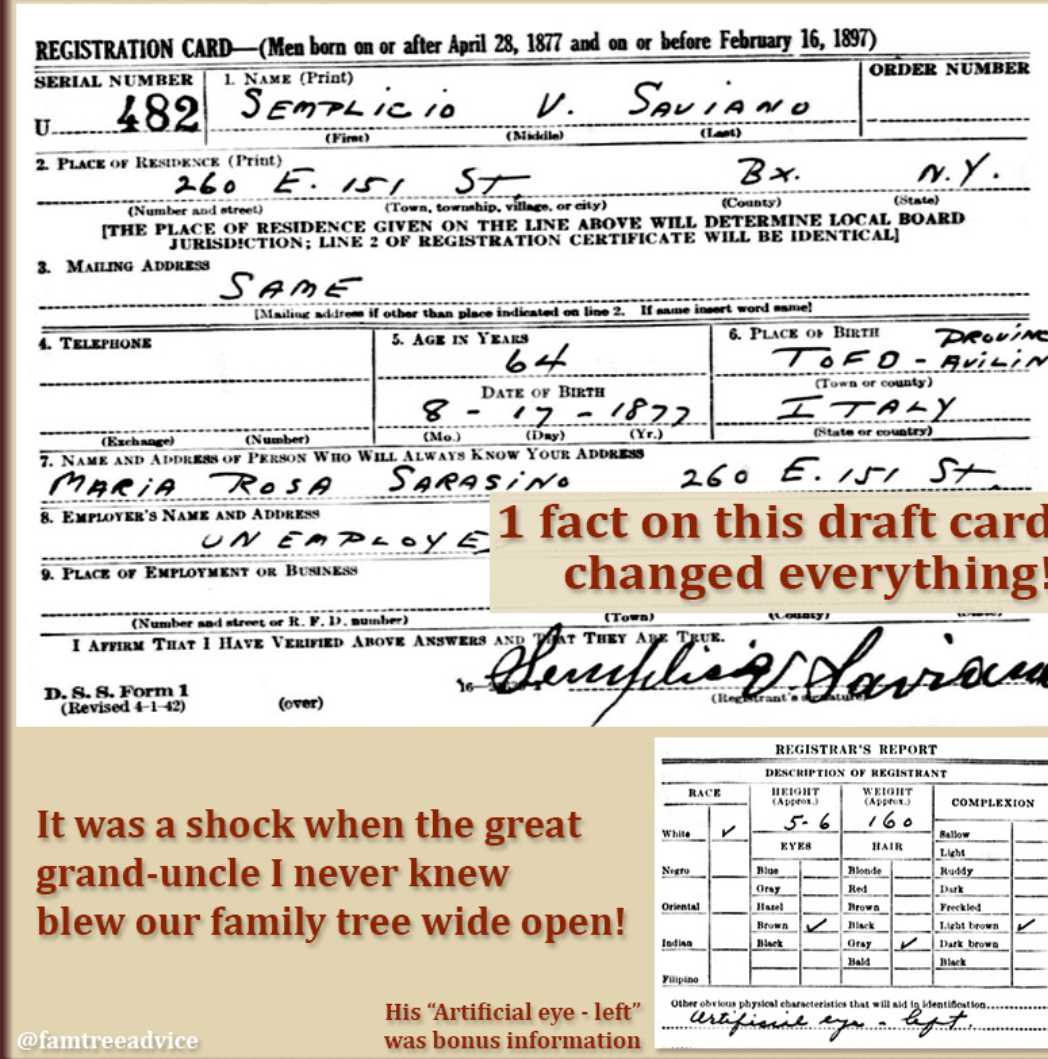 REGISTRATION CARD—(Men born on or after April 28, 1877 and on or before February 16, 1897)
SERIAL NUMBER
1. NAME (Print)
ORDER NUMBER
U 482
SEMPLICIO V. SAVIANO
(First) (Middle) (Last)
2. PLACE OF RESIDENCE (Print)
260 E. 151 ST. Bx. N.Y.
(Number and street) (Town, township, village, or city) (County) (State)
[THE PLACE OF RESIDENCE GIVEN ON THE LINE ABOVE WILL DETERMINE LOCAL BOARD
JURISDICTION; LINE 2 OF REGISTRATION CERTIFICATE WILL BE IDENTICAL]
3. MAILING ADDRESS
SAME
[Mailing address if other than place indicated on line 2. If same insert word same]
4. TELEPHONE
5. AGE IN YEARS
6. PLACE OF BIRTH
64
PROVINC
TOFO - AVILIN
DATE OF BIRTH
(Town or county)
8 - 17 - 1877
ITALY
(Exchange) (Number)
(Mo.) (Day) (Yr.)
(State or country)
7. NAME AND ADDRESS OF PERSON WHO WILL ALWAYS KNOW YOUR ADDRESS
MARIA ROSA SARASINO 260 E. 151 St
8. EMPLOYER'S NAME AND ADDRESS
UNEMPLOYE
1 fact on this draft card
changed everything!
9. PLACE OF EMPLOYMENT OR BUSINESS
(Number and street or R. F. D. number) (Town) (County)
I AFFIRM THAT I HAVE VERIFIED ABOVE ANSWERS AND THAT THEY ARE TRUE.
D. S. S. Form 1
(Revised 4-1-42)
(over)
16—
Semplicio V. Saviano
(Registrant's signature)
It was a shock when the great
grand-uncle I never knew
blew our family tree wide open!
REGISTRAR'S REPORT
DESCRIPTION OF REGISTRANT
RACE
HEIGHT (Approx.)
WEIGHT (Approx.)
COMPLEXION
5-6
160
White ✓
EYES
HAIR
Sallow
Light
Negro
Blue
Blonde
Ruddy
Gray
Red
Dark
Oriental
Hazel
Brown
Freckled
Brown ✓
Black
Light brown ✓
Indian
Black
Gray ✓
Dark brown
Bald
Black
Filipino
Other obvious physical characteristics that will aid in identification
Artificial eye - left.
His “Artificial eye - left”
was bonus information
@famtreeadvice